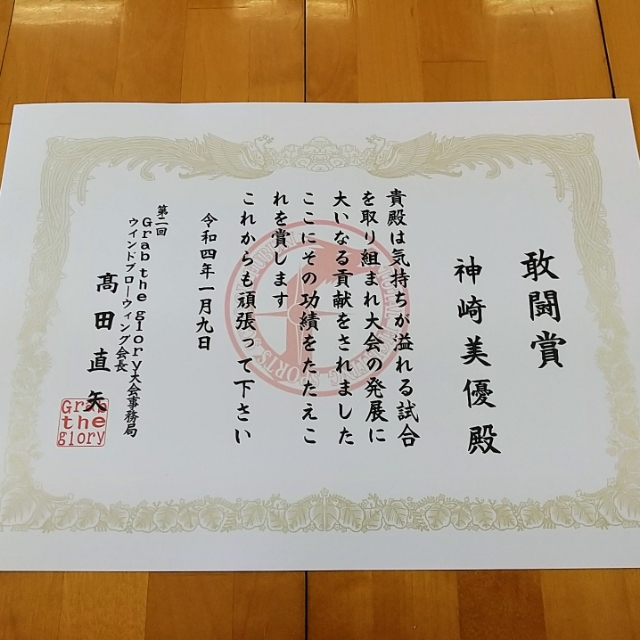 敢闘賞
神崎美優殿
貴殿は気持ちが溢れる試合
を取り組まれ大会の発展に
大いなる貢献をされました
ここにその功績をたたえこ
れを賞します
これからも頑張って下さい
令和四年一月九日
第二回
Grab the glory大会事務局
ウインドブローウィング会長
髙田直矢
Grab
the
glory